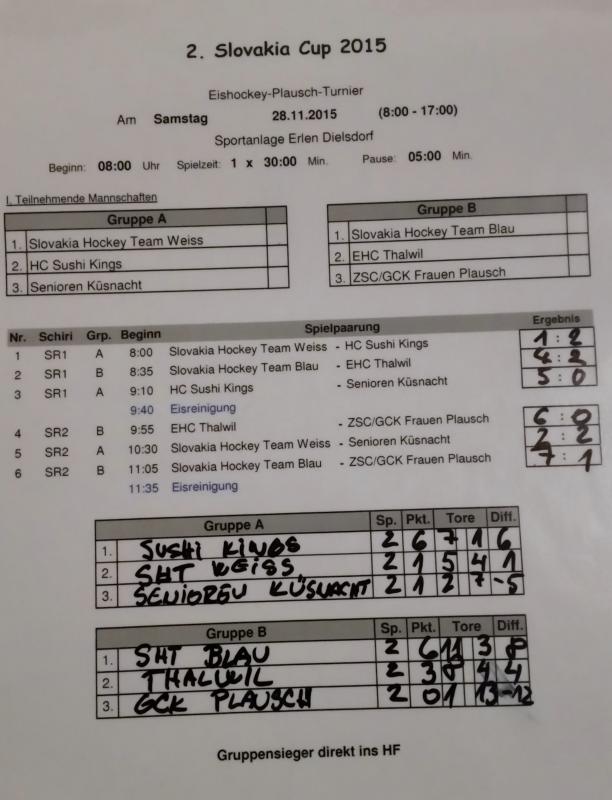 2. Slovakia Cup 2015
Eishockey-Plausch-Turnier
Am Samstag 28.11.2015 (8:00 - 17:00)
Sportanlage Erlen Dielsdorf
Beginn: 08:00 Uhr Spielzeit: 1 x 30:00 Min. Pause: 05:00 Min.
I. Teilnehmende Mannschaften
Gruppe A
1. Slovakia Hockey Team Weiss
2. HC Sushi Kings
3. Senioren Küsnacht
Gruppe B
1. Slovakia Hockey Team Blau
2. EHC Thalwil
3. ZSC/GCK Frauen Plausch
Nr. Schiri Grp. Beginn Spielpaarung Ergebnis
1 SR1 A 8:00 Slovakia Hockey Team Weiss - HC Sushi Kings 1 : 2
2 SR1 B 8:35 Slovakia Hockey Team Blau - EHC Thalwil 4 : 2
3 SR1 A 9:10 HC Sushi Kings - Senioren Küsnacht 5 : 0
9:40 Eisreinigung
4 SR2 B 9:55 EHC Thalwil - ZSC/GCK Frauen Plausch 6 : 0
5 SR2 A 10:30 Slovakia Hockey Team Weiss - Senioren Küsnacht 2 : 2
6 SR2 B 11:05 Slovakia Hockey Team Blau - ZSC/GCK Frauen Plausch 7 : 1
11:35 Eisreinigung
Gruppe A Sp. Pkt. Tore Diff.
1. SUSHI KINGS 2 6 7 1 6
2. SHT WEISS 2 1 5 4 1
3. SENIOREN KÜSNACHT 2 1 2 7 -5
Gruppe B Sp. Pkt. Tore Diff.
1. SHT BLAU 2 6 11 3 8
2. THALWIL 2 3 8 4 4
3. GCK PLAUSCH 2 0 1 13 -12
Gruppensieger direkt ins HF